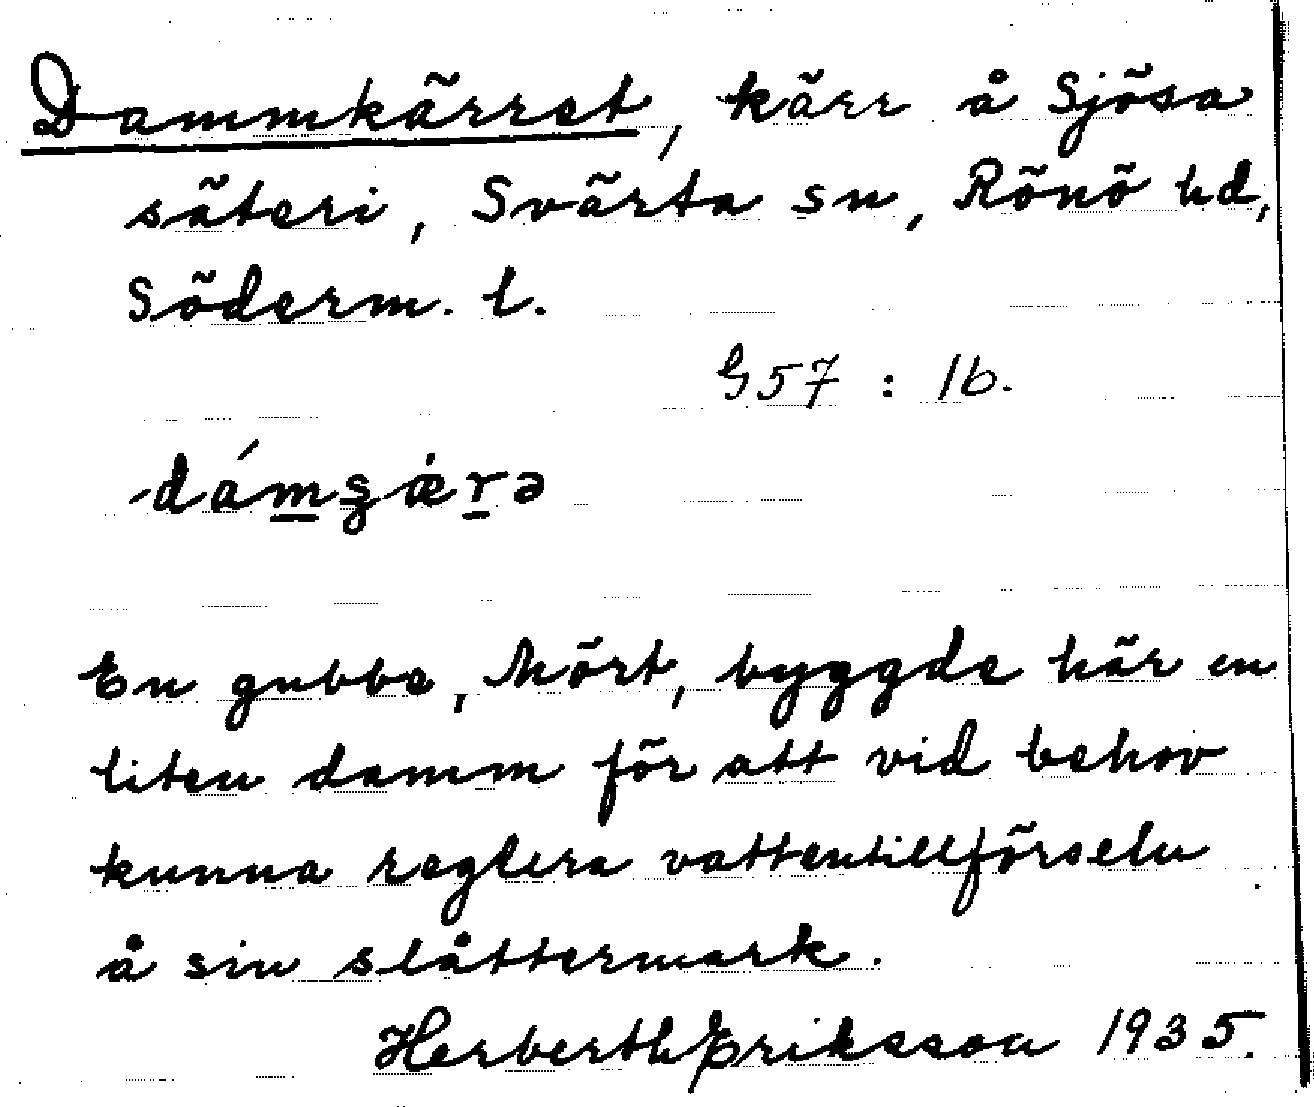 Dammkärret, kärr å Sjösa
säteri, Svärta sn, Rönö hd,
Söderm. l.
G57 : 16.
dám̲ʒæ̇r̲ə
En gubbe, Mört, byggde här en
liten damm för att vid behov
kunna reglera vattentillförseln
å sin slåttermark.
Herberth Eriksson 1935.